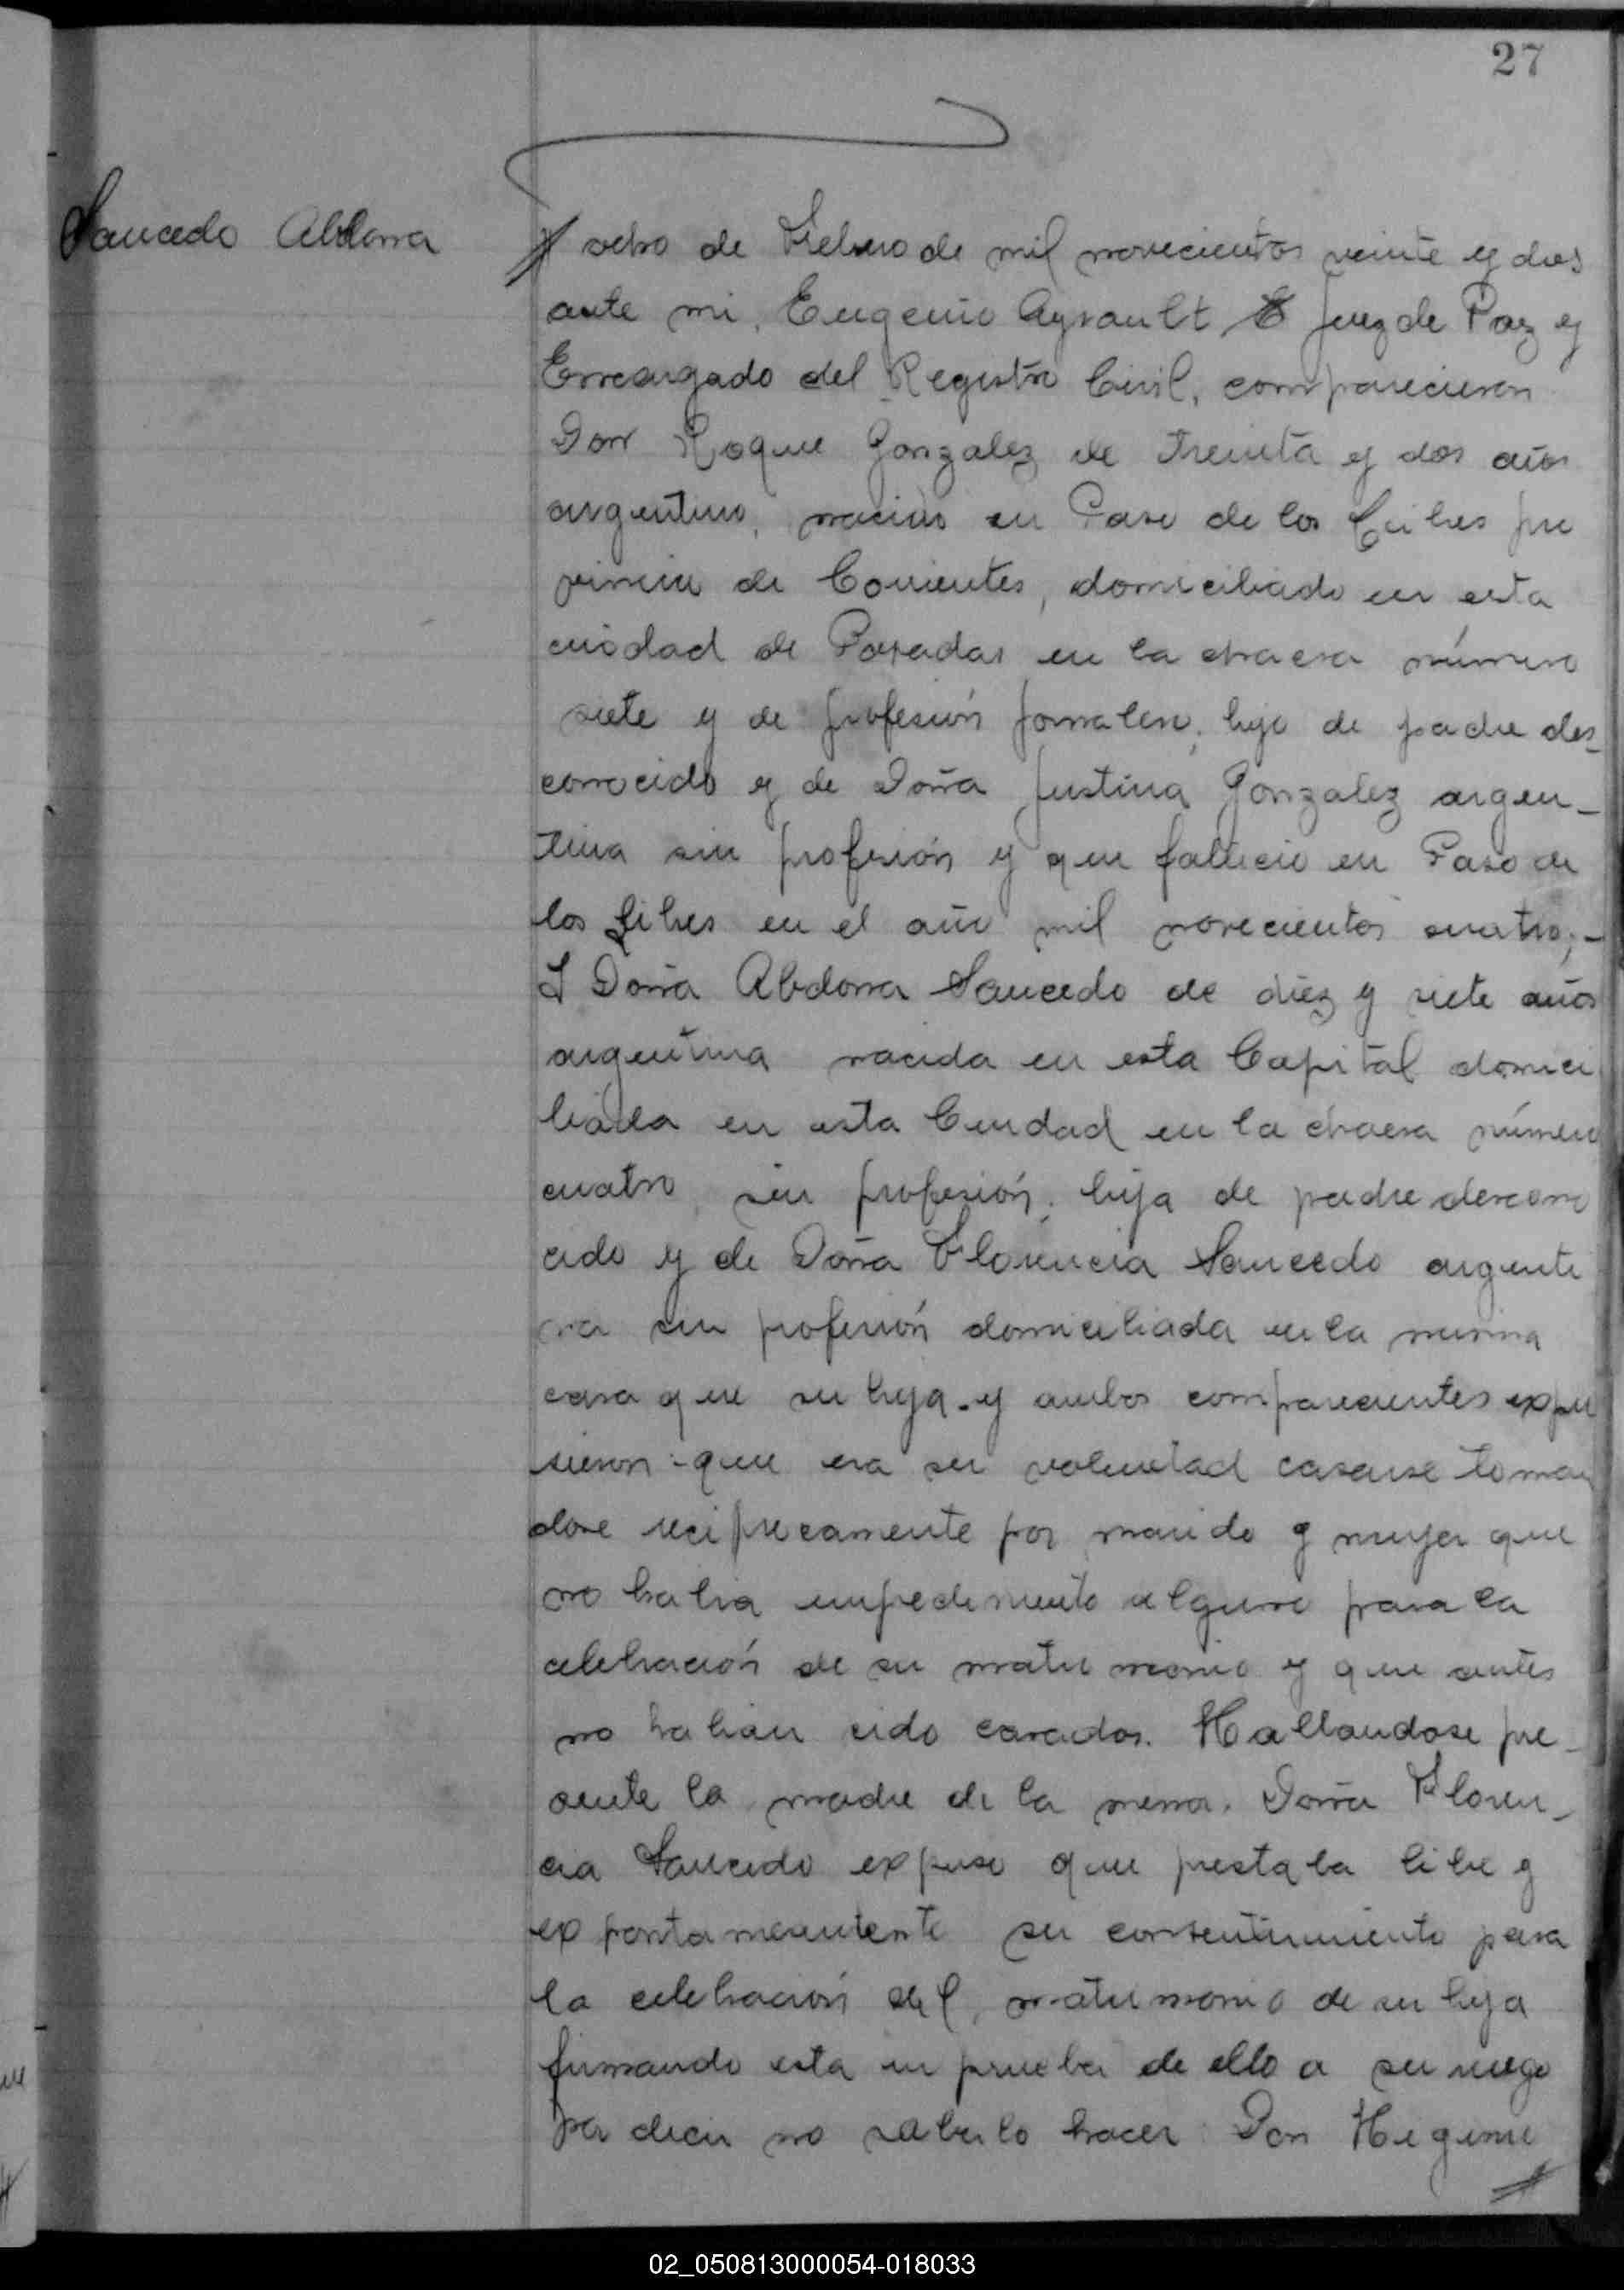 27
Saucedo Abdona
ocho de Febrero de mil novecientos veinte y dos
ante mi, Eugenio Ayrault Juez de Paz y
Encargado del Registro Civil, comparecieron
Don Roque Gonzalez de treinta y dos años
argentino, nacido en Paso de los Libres pro
vincia de Corrientes, domiciliado en esta
ciudad de Posadas en la chacra número
siete y de profesión jornalero, hijo de padre des_
conocido y de Doña Justina Gonzalez argen_
tina sin profesión y que falleció en Paso de
los Libres en el año mil novecientos cuatro;_
Y Doña Abdona Saucedo de diez y siete años
argentina nacida en esta Capital domici
liada en esta Ciudad en la chacra número
cuatro, sin profesión, hija de padre descono
cido y de Doña Florencia Saucedo argenti
na sin profesión domiciliada en la misma
casa que su hija. y ambos comparecientes expu
sieron que era su voluntad casarse toman
dose reciprocamente por marido y mujer que
no habia impedimento alguno para la
celebración de su matrimonio y que antes
no habian sido casados. Hallandose pre_
sente la madre de la menor. Doña Floren_
cia Saucedo expuso que prestaba libre y
expontameantente su consentimiento para
la celebración del matrimonio de su hija
firmando esta en prueba de ello a su ruego
por decir no saberlo hacer Don Heginio
02_050813000054-018033